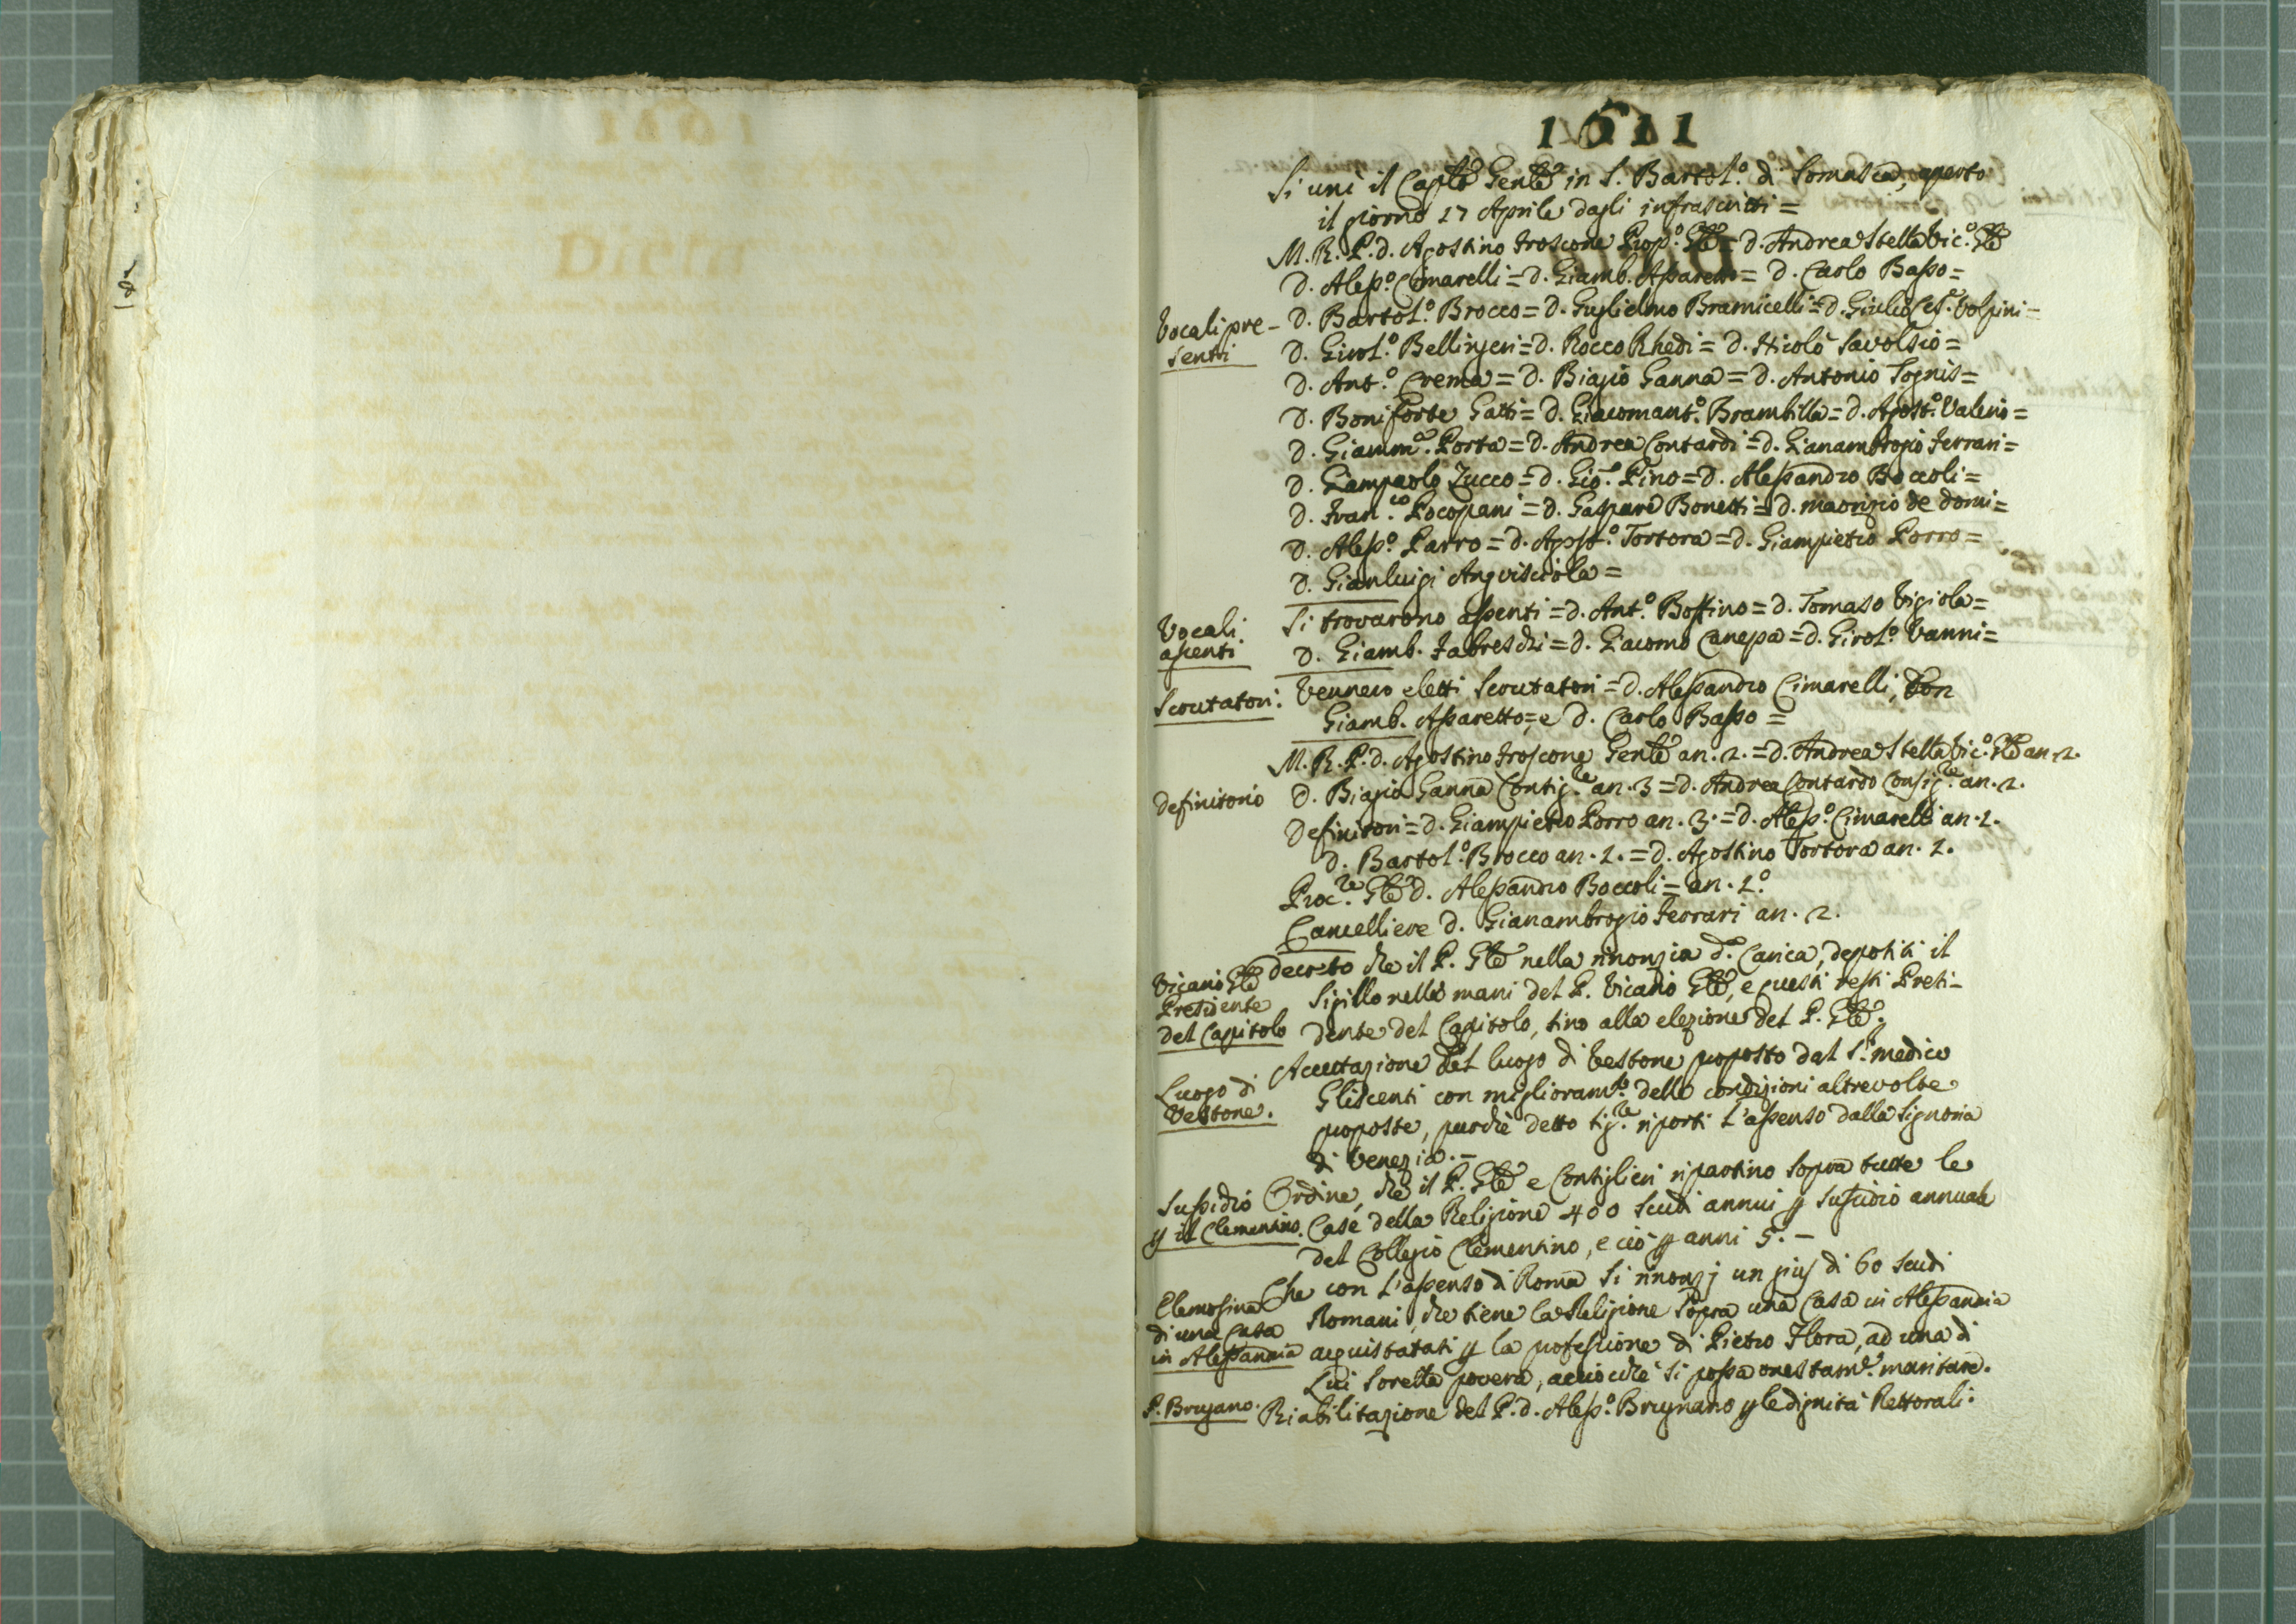 1611
Si unì il Caplo Genle in S. Bartol.o di Somasca, aperto
il giorno 17 Aprile dagli infrascritti =
M. R. P. d. Agostino Froscone Prop.o Gle = d. Andrea Stella Vic.o Gle
Vocali presenti
D. Aless.o Cimarelli = d. Giamb. Assaretto = d. Carlo Basso =
D. Bartol.o Brocco = d. Guglielmo Bramicelli = d. Giulio Ces.e Volpini =
D. Girol.o Bellingeri = d. Rocco Rhedi = d. Nicolò Savolsio =
D. Ant.o Crema = d. Biagio Ganna = d. Antonio Tognis =
D. Boniforte Gatti = d. Giacomant.o Brambilla = d. Agost.o Valerio =
D. Giamm.a Porta = d. Andrea Contardi = d. Gianambrogio Ferrari =
D. Giampaolo Zucco = d. Gio. Pino = d. Alessandro Boccoli =
D. Fran.co Pocopani = d. Gaspare Bonetti = d. Maorizio de Domi =
D. Aless.o Parro = d. Agost.o Tortora = d. Giampietro Porro =
D. Gianluigi Angvisciola =
Vocali assenti
Si trovarono assenti = d. Ant.o Bossino = d. Tomaso Vigiola =
D. Giamb. Fabreschi = d. Giacomo Canepa = d. Girol.o Vanni =
Scrutatori.
Vennero eletti Scrutatori = d. Alessandro Cimarelli, Don
Giamb. Assaretto, e d. Carlo Basso =
Definitorio
M. R. P. d. Agostino Froscone Genle an. 2. = d. Andrea Stella Vic.o Gle an. 2.
D. Biagio Ganna Consig.re an. 3 = d. Andrea Contardo Consig.re an. 2.
Definitori = d. Giampietro Porro an. 3. = d. Aless.o Cimarelli an. 2.
D. Bartol.o Brocco an. 2. = d. Agostino Tortora an. 2.
Proc.re Gle d. Alessandro Boccoli = an. 2.o
Cancelliere d. Gianambrogio Ferrari an. 2.
Vicario Gle
Presidente
del Capitolo
Decreto che il P. Gle nella rinonzia d.a Carica, depositi il
Sigillo nelle mani del P. Vicario Gle, e questi resti Presi-
dente del Capitolo, sino alla elezione del P. Gle.
Luogo di
Vestone.
Accettazione del luogo di Vestone proposto dal S.r medico
Gliscenti con miglioram.to delle condizioni altrevolte
proposte, purchè detto sig.re riporti l'assenso dalla Signoria
di Venezia. -
Sussidio
p il Clementino.
Ordine, che il P. Gle e Consiglieri ripartino sopra tutte le
Case della Religione 400 scudi annui p sussidio annuale
del Collegio Clementino, e ciò p anni 5. -
Elemosina
di una Casa
in Alessandria
Che con l'assenso di Roma si rinonzj un pius di 60 scudi
Romani, che tiene la Religione sopra una Casa in Alessandria
acquistatasi p la professione di Pietro Flora, ad una di
Lui Sorella povera, acciocchè si possa onestam.e maritare.
P. Brugano.
Riabilitazione del P. d. Aless.o Brugnano p le dignità Rettorali.